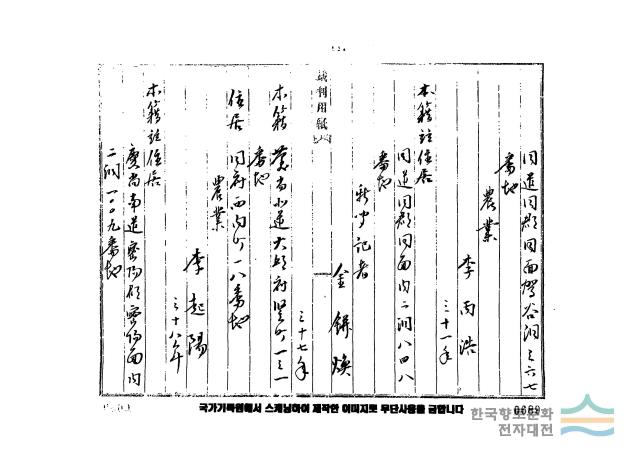 同道同郡同面駕谷洞三六七
番地
農業
李丙浩
三十一年
本籍並住居
同道同郡同面內二洞八四八
番地
新聞記者
金鉼煥
三十七年
裁判用紙
本籍 慶尚北道大邱府竪町一三一
番地
住居 同府西內町一八番地
農業
李起陽
三十八年
本籍並住居
慶尚南道密陽郡密陽面內
二洞一〇〇九番地
국가기록원에서 스캐닝하여 제작한 이미지로 무단사용을 금합니다
한국향토문화
전자대전